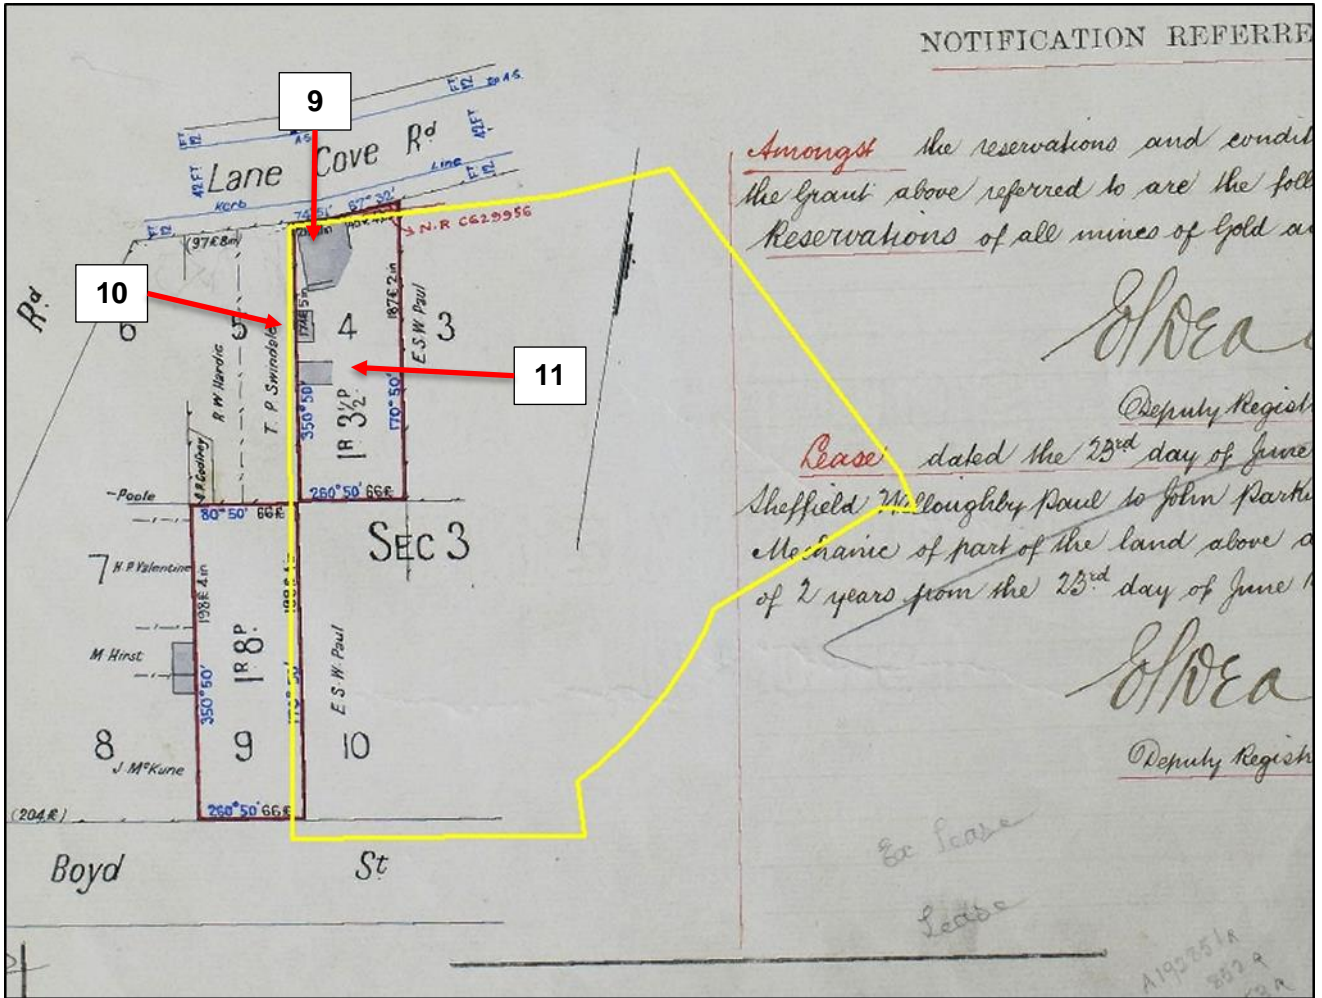 NOTIFICATION REFERRE
9
FT 12
FT 12
42 FT
42 FT
Lane Cove Rd
Kerb Line
FT 12
FT 12
67°32'
N.R C629956
(97ft 8in)
10
Rd
6
5
4
3
R W Hardie
T. P Swindale
E.S.W. Paul
187ft 2in
11
350°50'
1R 3½P.
170°50'
260°50' 66ft
Poole
80°50' 66ft
SEC 3
7
H.P. Valentine
198ft 4in
M Hirst
1R 8P.
350°50'
E S.W. Paul
8
J McKune
9
10
(204ft)
260°50' 66ft
Boyd St
Amongst the reservations and condit
the Grant above referred to are the foll
Reservations of all mines of Gold a
Deputy Regist
Lease dated the 23rd day of June
Sheffield Willoughby Paul to John Park
Mechanic of part of the land above a
of 2 years from the 23rd day of June 1
Deputy Regist
Lease
A192851R
852 R